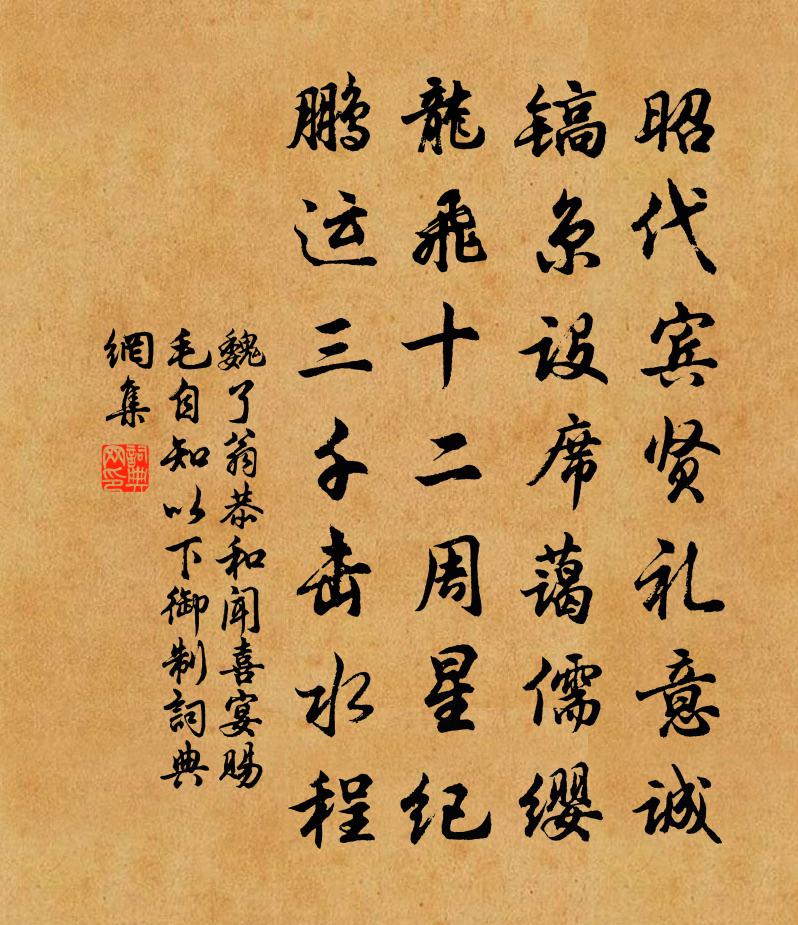 昭代宾贤礼意诚
镐京设席蔼儒缨
龍飛十二周星纪
鹏运三千击水程
魏了翁恭和闻喜宴赐
毛自知以下御制詞典
網集
詞典
网印